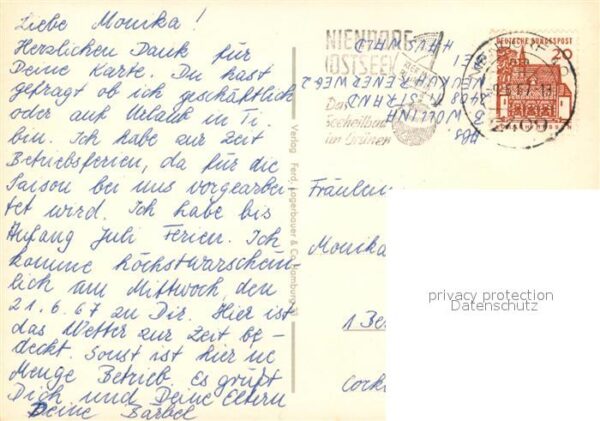 Liebe Monika!
Herzlichen Dank für
Deine Karte. Du hast
gefragt ob ich geschäftlich
oder auf Urlaub in Ti.
bin. Ich habe zur Zeit
Betriebsferien, da für die
Saison bei uns vorgearbei
tet wird. Ich habe bis
Anfang Juli Ferien. Ich
komme höchstwarschein
lich am Mittwoch, den
21.6.67 zu Dir. Hier ist
das Wetter zur Zeit be-
deckt. Sonst ist hier ne
Menge Betrieb. Es grüßt
Dich und Deine Eltern
Deine Bärbel
Verlag Ferd. Lagerbauer & Co. Hamburg
NIENDORF
(OSTSEE)
Das
Seeheilbad
im Grünen
DEUTSCHE BUNDESPOST
20
2409
ABS
B WOLLIN
BEI
Fräulein
Monika
1 Be
privacy protection
Datenschutz